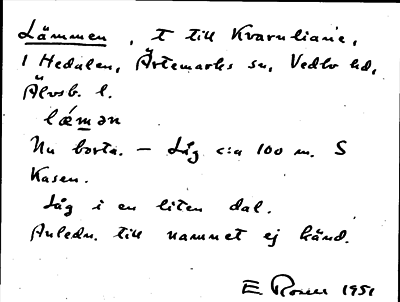 Lämmen, t till Kvarnliane,
i Hedalen, Ärtemarks sn, Vedbo hd,
Älvsb. l.
lǽmən
Nu borta. – Låg c:a 100 m. S
Kasen.
Låg i en liten dal.
Anledn. till namnet ej känd.
E 1951